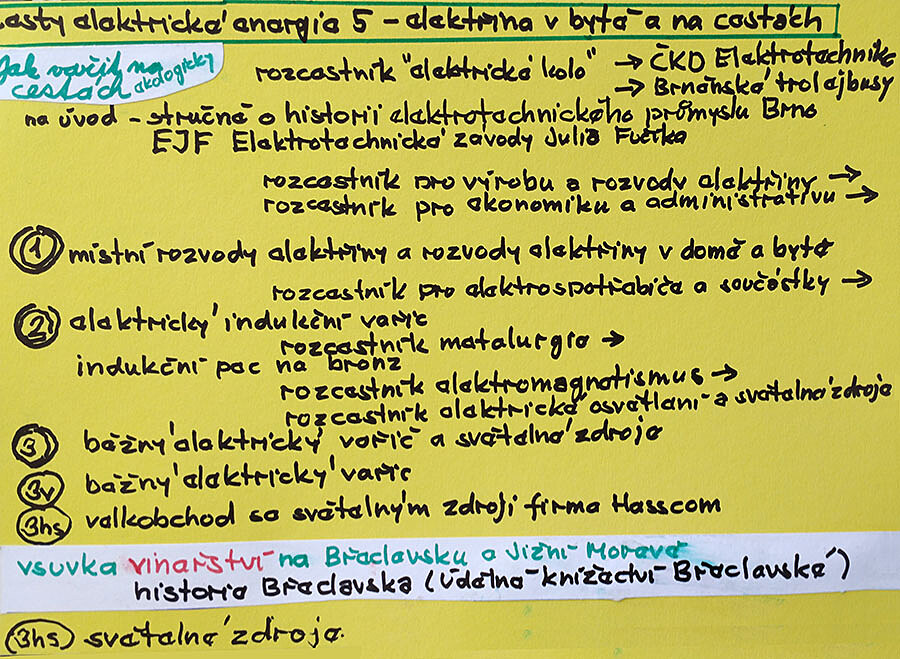 esty elektrické energie 5 - elektřina v bytě a na cestách
Jak vařit na
cestách ekologicky
rozcestník "elektrické kolo" → ČKD Elektrotechnika
→ Brněnské trolejbusy
na úvod - stručně o historii elektrotechnického průmyslu Brno
EJF Elektrotechnické závody Julia Fučíka
rozcestník pro výrobu a rozvody elektřiny →
rozcestník pro ekonomiku a administrativu →
1 místní rozvody elektřiny a rozvody elektřiny v domě a bytě
rozcestník pro elektrospotřebiče a součástky →
2 elektrický indukční vařič
rozcestník metalurgie →
indukční pec na bronz
rozcestník elektromagnetismus →
rozcestník elektrické osvětlení a světelné zdroje
3 běžný elektrický vařič a světelné zdroje
3v běžný elektrický vařič
3hs velkobchod se světelným zdroji firma Hasscom
vsuvka vinařství na Břeclavsku a Jižní Moravě
historie Břeclavska (údělné knížectví Břeclavské)
3hs světelné zdroje.